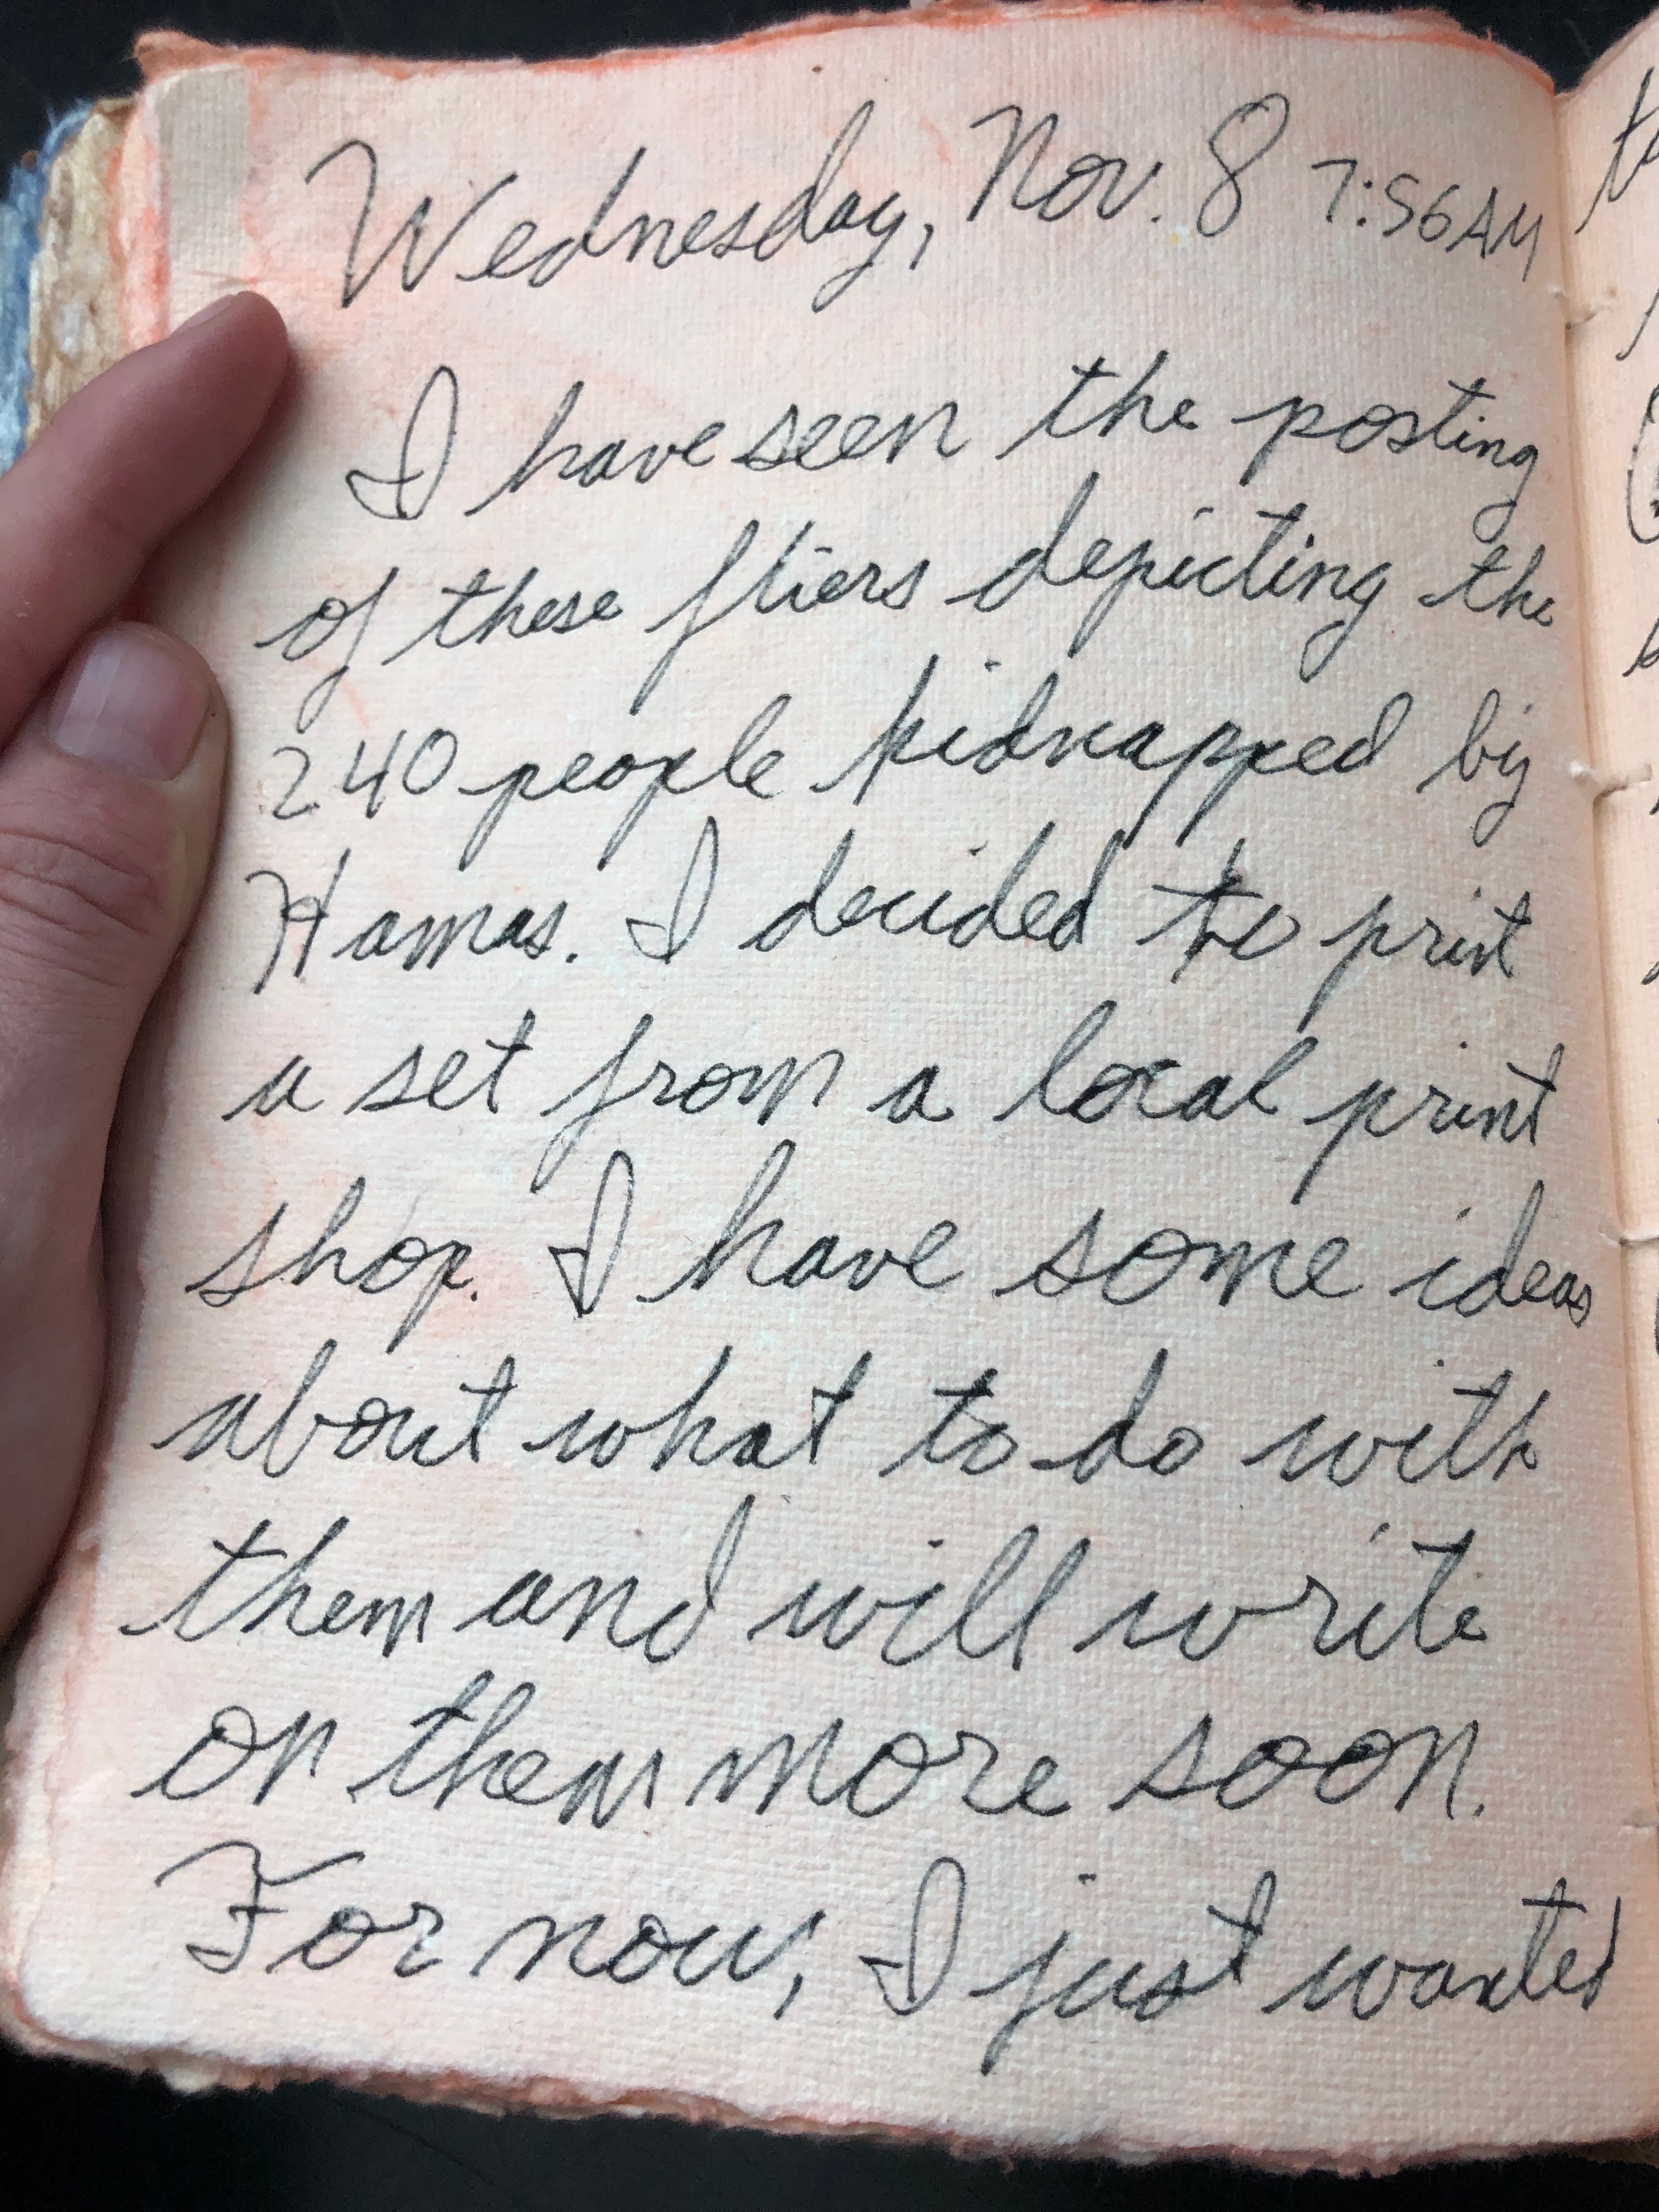 Wednesday, Nov. 8 7:56AM
I have seen the posting
of these fliers depicting the
240 people kidnapped by
Hamas. I decided to print
a set from a local print
shop. I have some ideas
about what to do with
them and will write
on them more soon.
For now, I just wanted